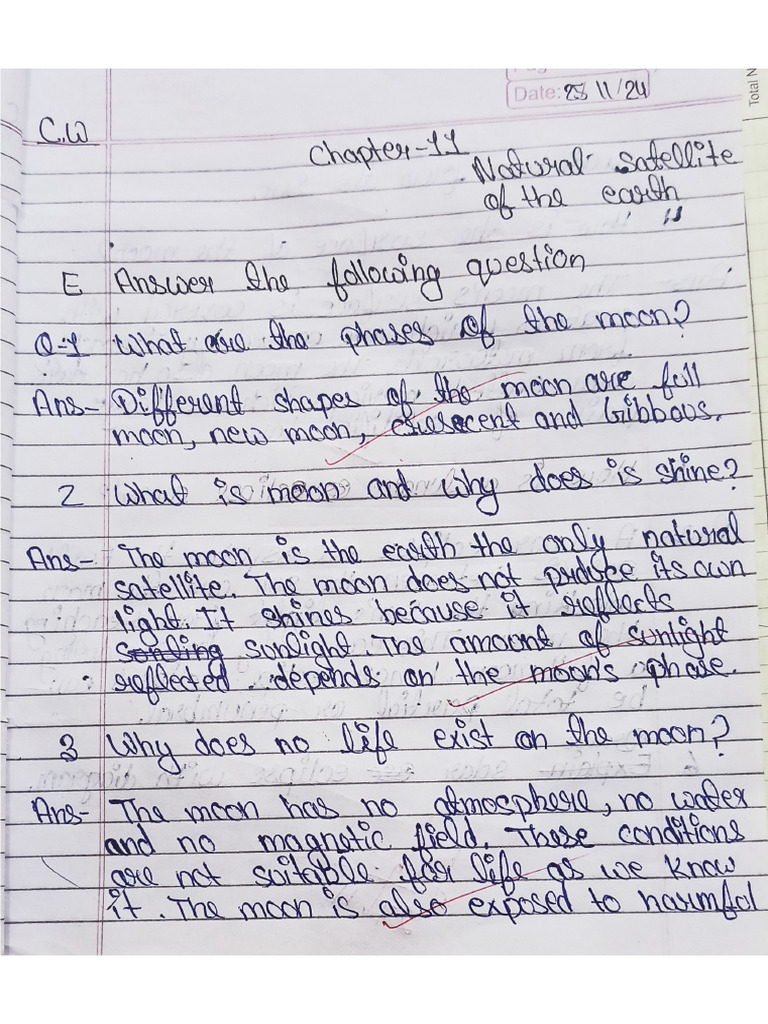 Total N
Date: 25 11/24
C.W
Chapter-11
Natural satellite
of the earth
E Answer the following question
Q-1 What are the phases of the moon?
Ans- Different shapes of the moon are full
moon, new moon, cresecent and Gibbous.
2 What is moon and why does is shine?
Ans- The moon is the earth the only natural
satellite. The moon does not produce its own
light. It shines because it reflects
sunlight. The amount of sunlight
reflected depends on the moon's phase.
3 Why does no life exist on the moon?
Ans- The moon has no atmosphere, no water
and no magnetic field. These conditions
are not suitable for life as we know
it. The moon is also exposed to harmful